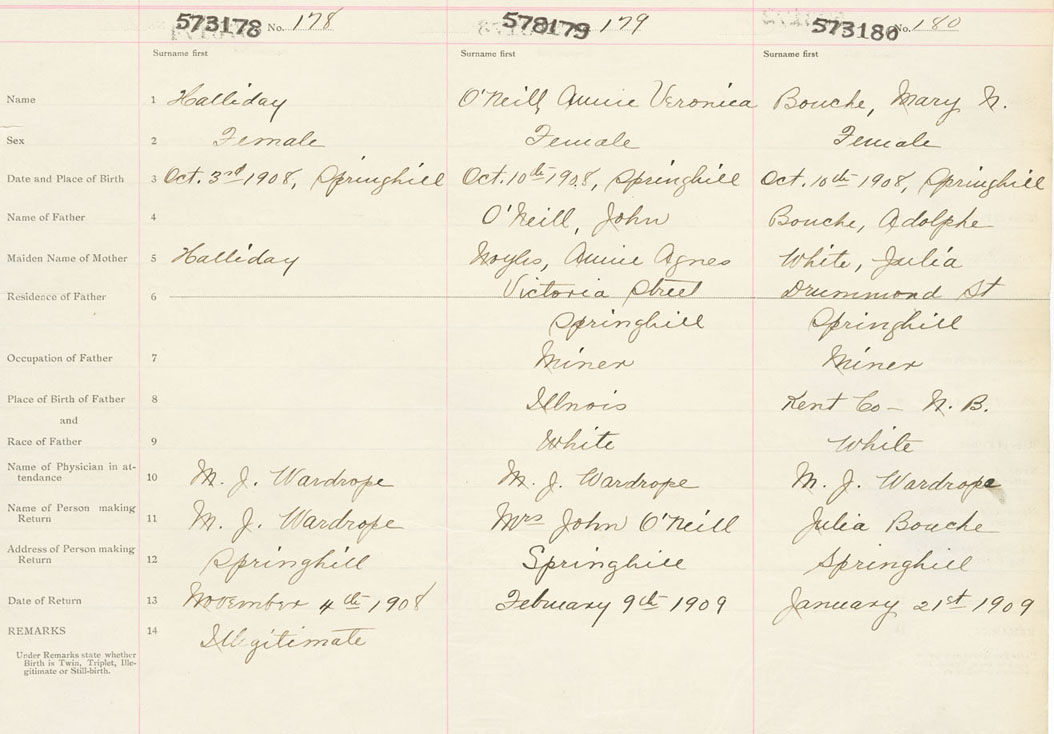 573178 No. 178 578179 179 573180 No. 180
Surname first Surname first Surname first
Name 1 Halliday O'Neill, Annie Veronica Bouche, Mary N.
Sex 2 Female Female Female
Date and Place of Birth 3 Oct. 3rd 1908, Springhill Oct. 10th 1908, Springhill Oct. 10th 1908, Springhill
Name of Father 4 O'Neill, John Bouche, Adolphe
Maiden Name of Mother 5 Halliday Noyles, Annie Agnes White, Julia
Residence of Father 6 Victoria Street Drummond St
Springhill Springhill
Occupation of Father 7 Miner Miner
Place of Birth of Father 8 Illnois Kent Co - N. B.
and
Race of Father 9 White White
Name of Physician in at-
tendance 10 M. J. Wardrope M. J. Wardrope M. J. Wardrope
Name of Person making
Return 11 M. J. Wardrope Mrs John O'Neill Julia Bouche
Address of Person making
Return 12 Springhill Springhill Springhill
Date of Return 13 November 4th 1908 February 9th 1909 January 21st 1909
REMARKS 14 Illegitimate
Under Remarks state whether
Birth is Twin, Triplet, Ille-
gitimate or Still-birth.